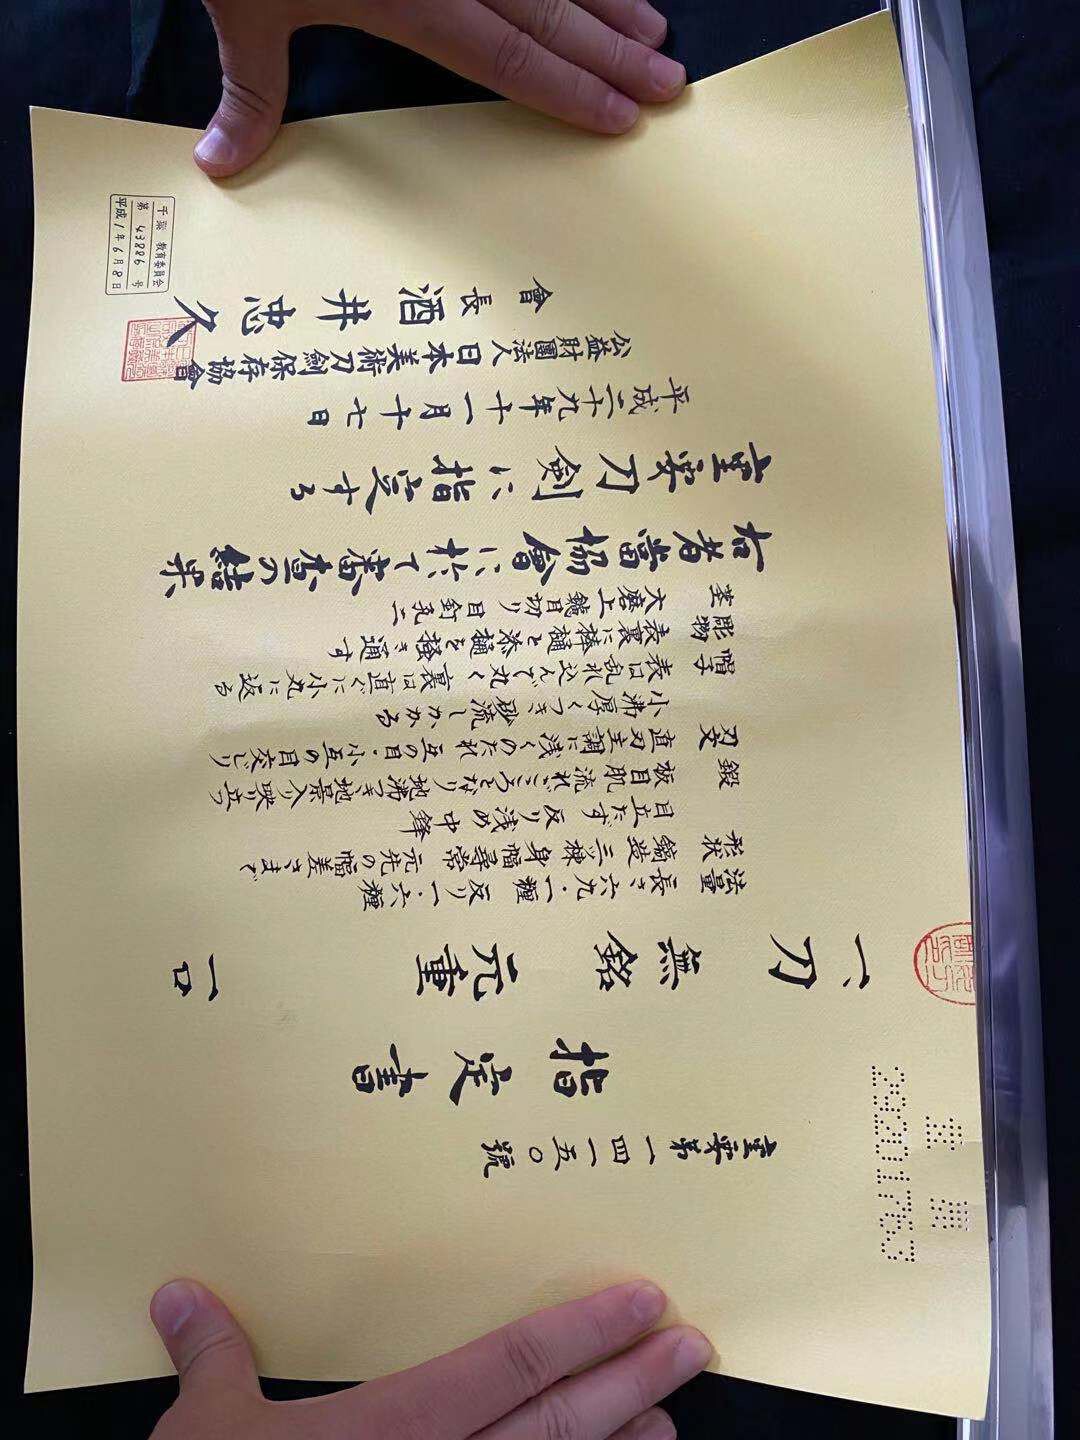 重要第一四一五〇號
指定書
一、刀 無銘 元重 一口
法量 長さ六九・一糎 反り一・六糎
形状 鎬造 三ッ棟 身幅尋常 元先の幅差さまで
目立たず 反り浅め 中鋒
鍛 板目肌流れごころとなり 地沸つき 地景入り 映り立つ
刃文 直刃主調に浅くのたれ 互の目・小互の目交じり
小沸厚くつき 砂流しかかる
帽子 表は乱れ込んで丸く 裏は直ぐに小丸に返る
彫物 表裏に棒樋と添樋を掻き通す
茎 大磨上 鑢目切り 目釘孔二
右者當協會に於て審査の結果
重要刀剣に指定する
平成二十九年十一月十七日
公益財團法人日本美術刀劍保存協會
會長 酒井忠久
千葉 教育委員会
第 43886 号
平成1年6月8日